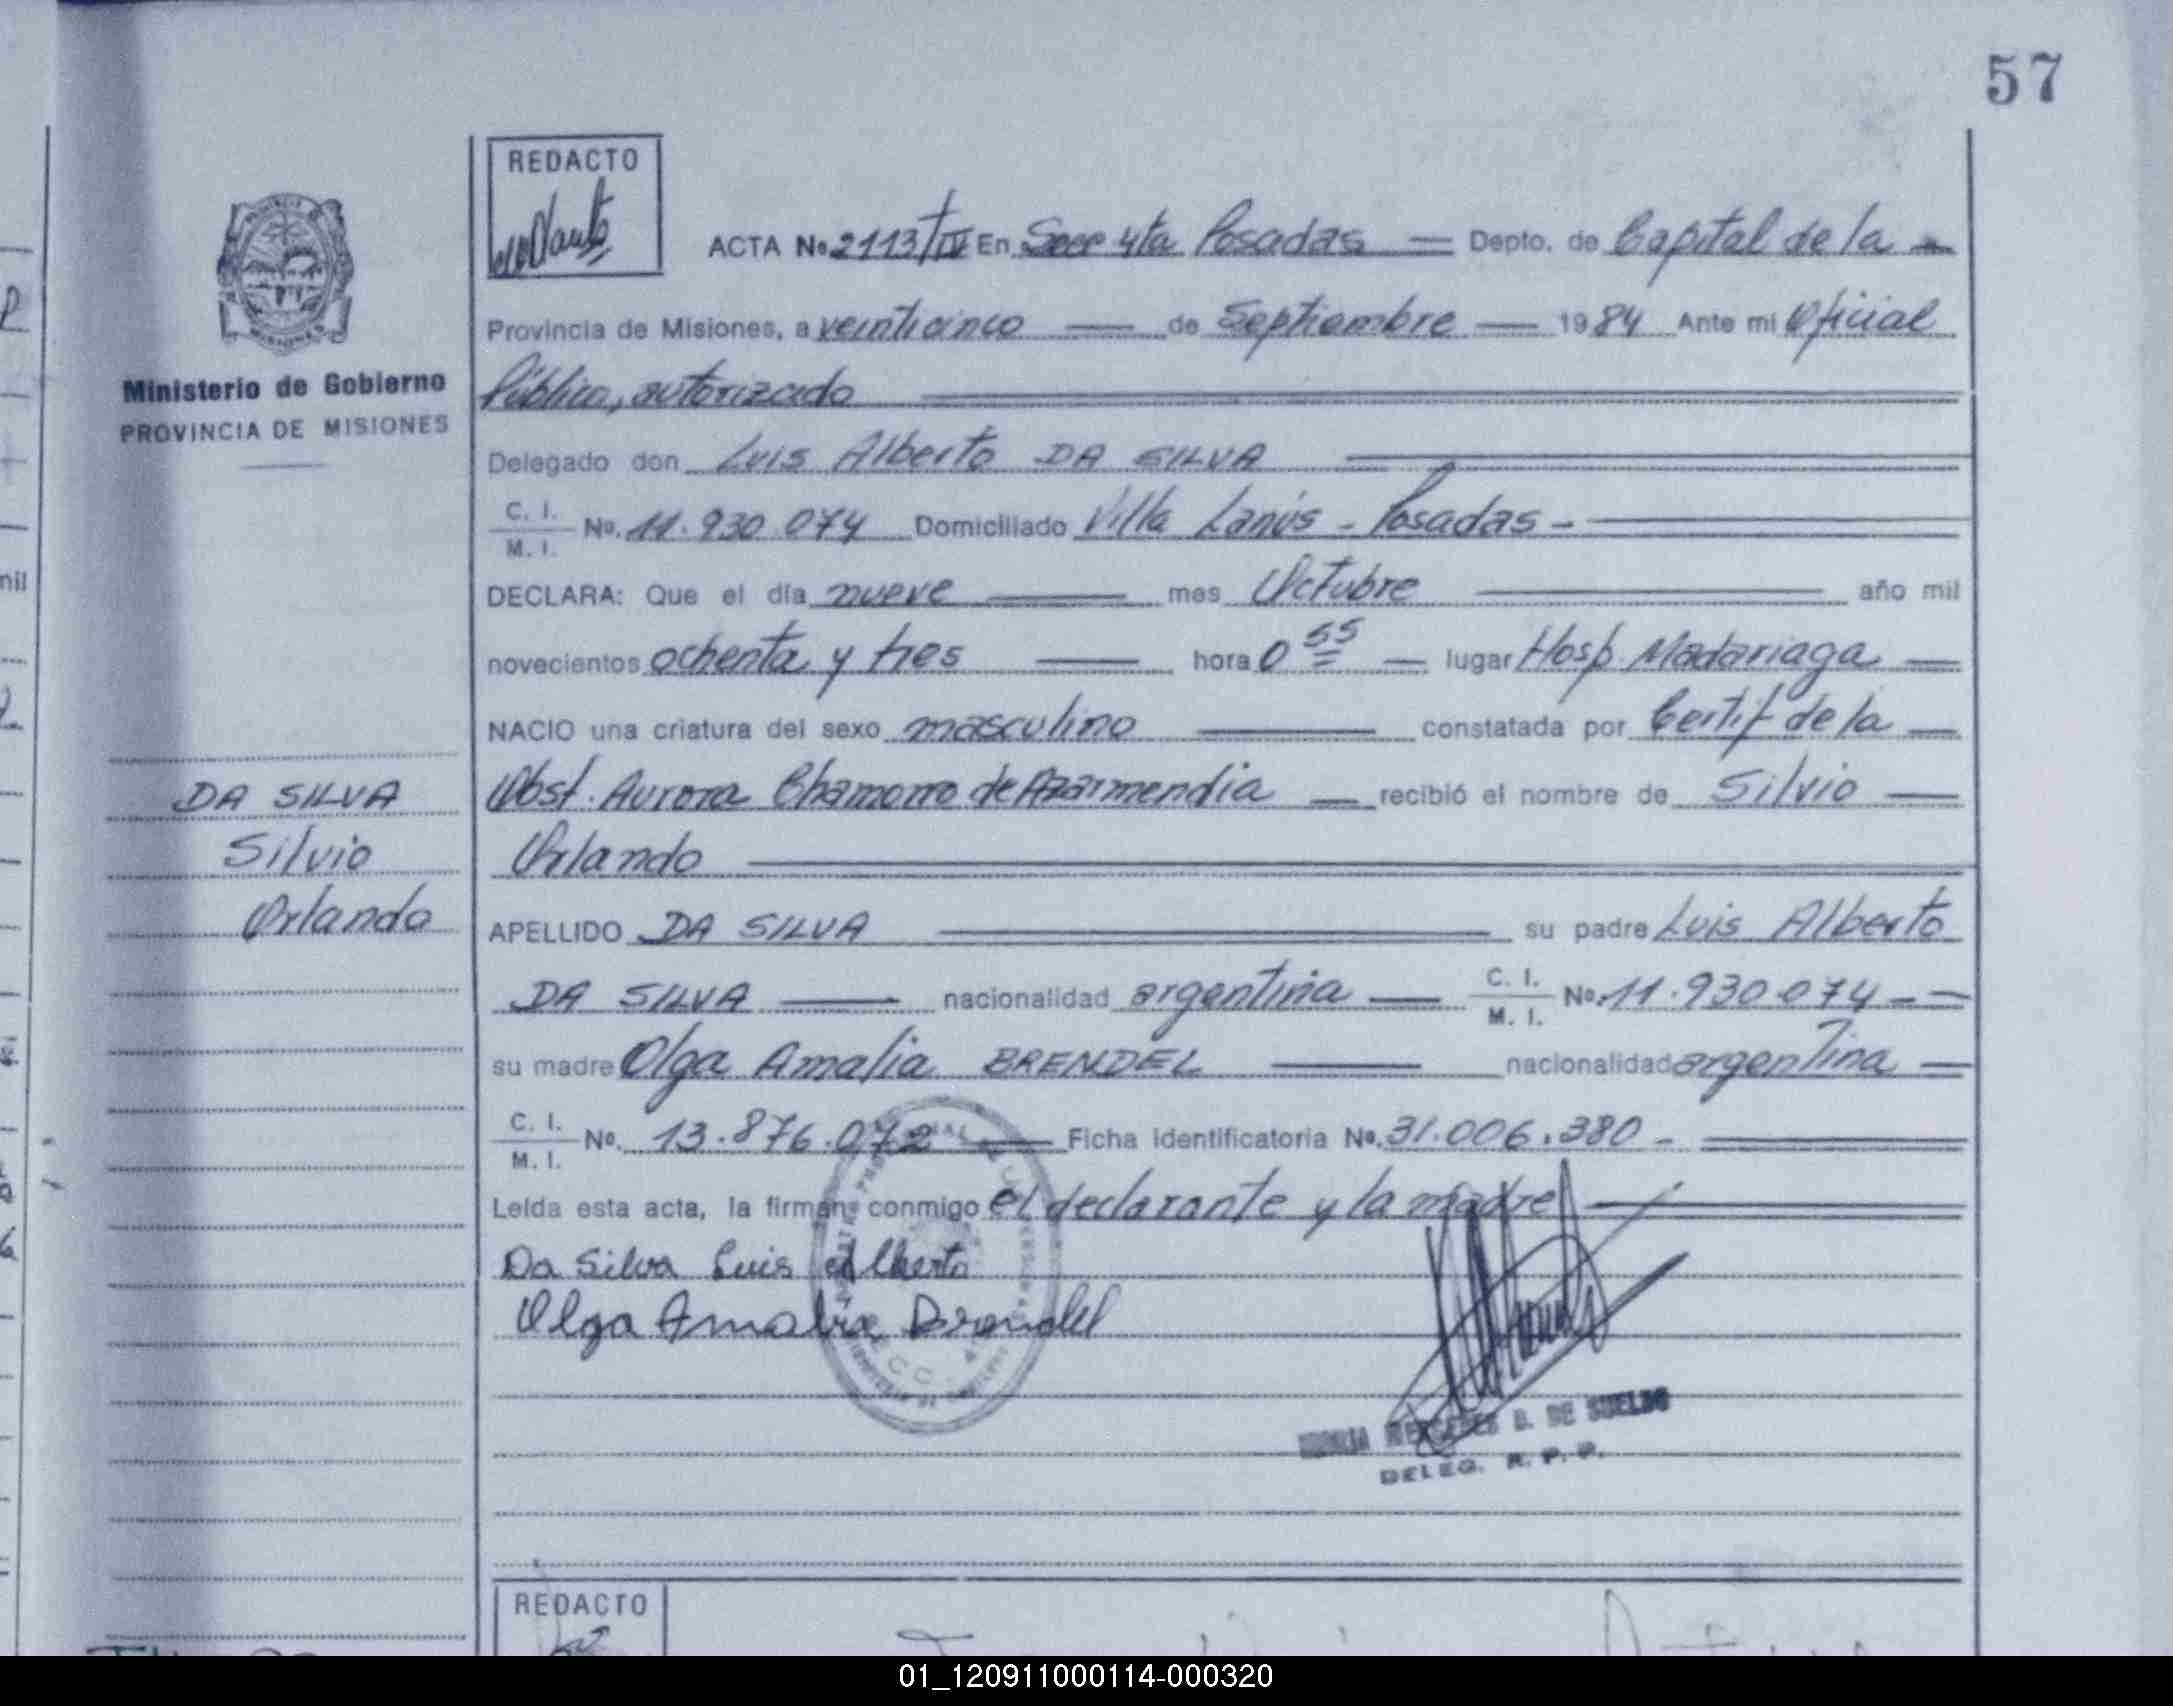 57
REDACTO
ACTA No 2113/IV En Secc 4ta Posadas Depto. de Capital de la
Provincia de Misiones, a veinticinco de Septiembre 1984 Ante mi Oficial
Público, autorizado
Delegado don Luis Alberto DA SILVA
C. I. M. I. No. 11.930.074 Domiciliado Villa Lanús - Posadas -
DECLARA: Que el día nueve mes Octubre año mil
novecientos ochenta y tres hora 0 55 lugar Hosp. Madariaga
NACIO una criatura del sexo masculino constatada por Certif de la
Obst. Aurora Chamorro de Azarmendia recibió el nombre de Silvio
Orlando
APELLIDO DA SILVA su padre Luis Alberto
DA SILVA nacionalidad argentina C. I. M. I. No. 11.930.074
su madre Olga Amalia BRENDEL nacionalidad argentina
C. I. M. I. No. 13.876.072 Ficha identificatoria No. 31.006.380 -
Leída esta acta, la firman conmigo el declarante y la madre
Da Silva Luis Alberto
Olga Amalia Brendel
MERCEDES B. DE SUELDO
DELEG. R. P. P.
REDACTO
Ministerio de Gobierno
PROVINCIA DE MISIONES
DA SILVA
Silvio
Orlando
01_120911000114-000320